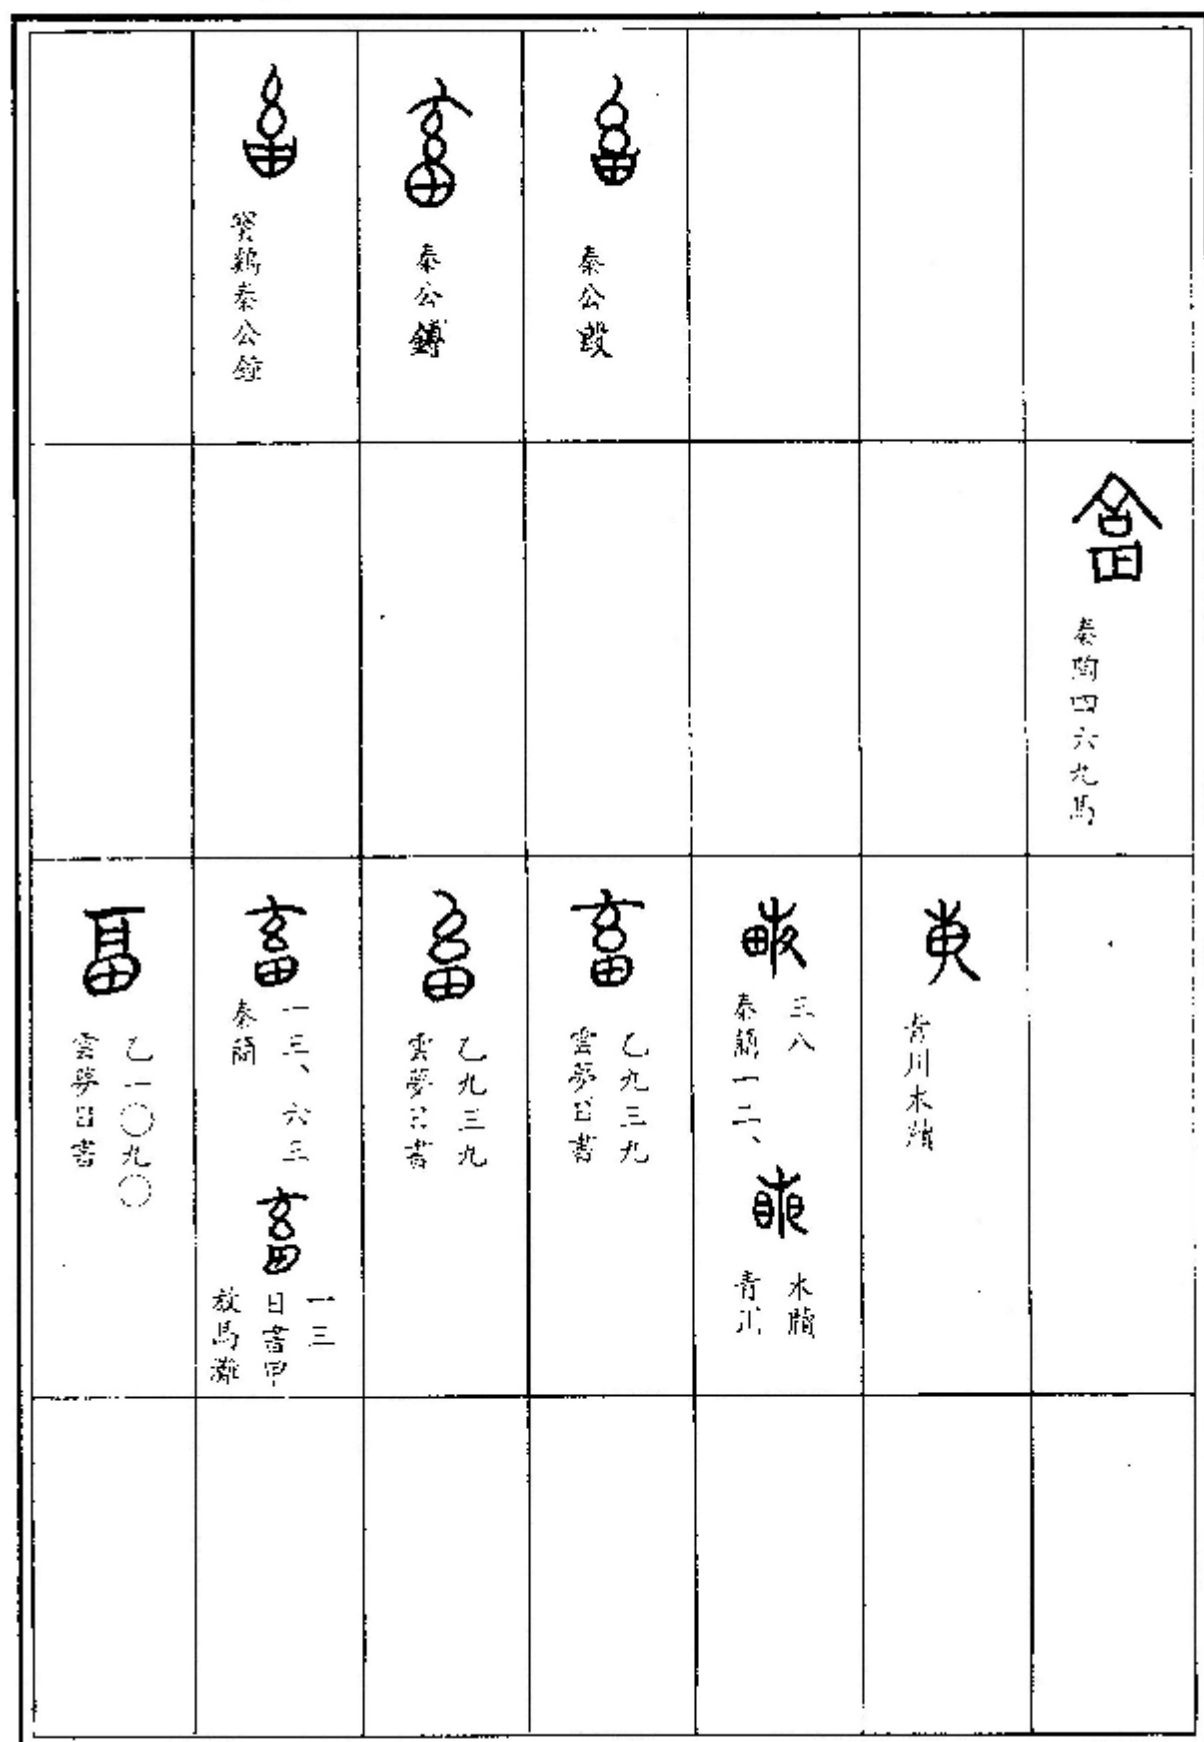 秦公𣪘
秦公鎛
寶鷄秦公鐘
秦陶四六九馬
青川木牘
畮
秦簡一二、
三八
畮
青川
木牘
畜
雲夢日書
乙九三九
畜
雲夢日書
乙九三九
畜
秦簡
一三、六三
畜
放馬灘
日書甲
一三
雲夢日書
乙一〇九〇